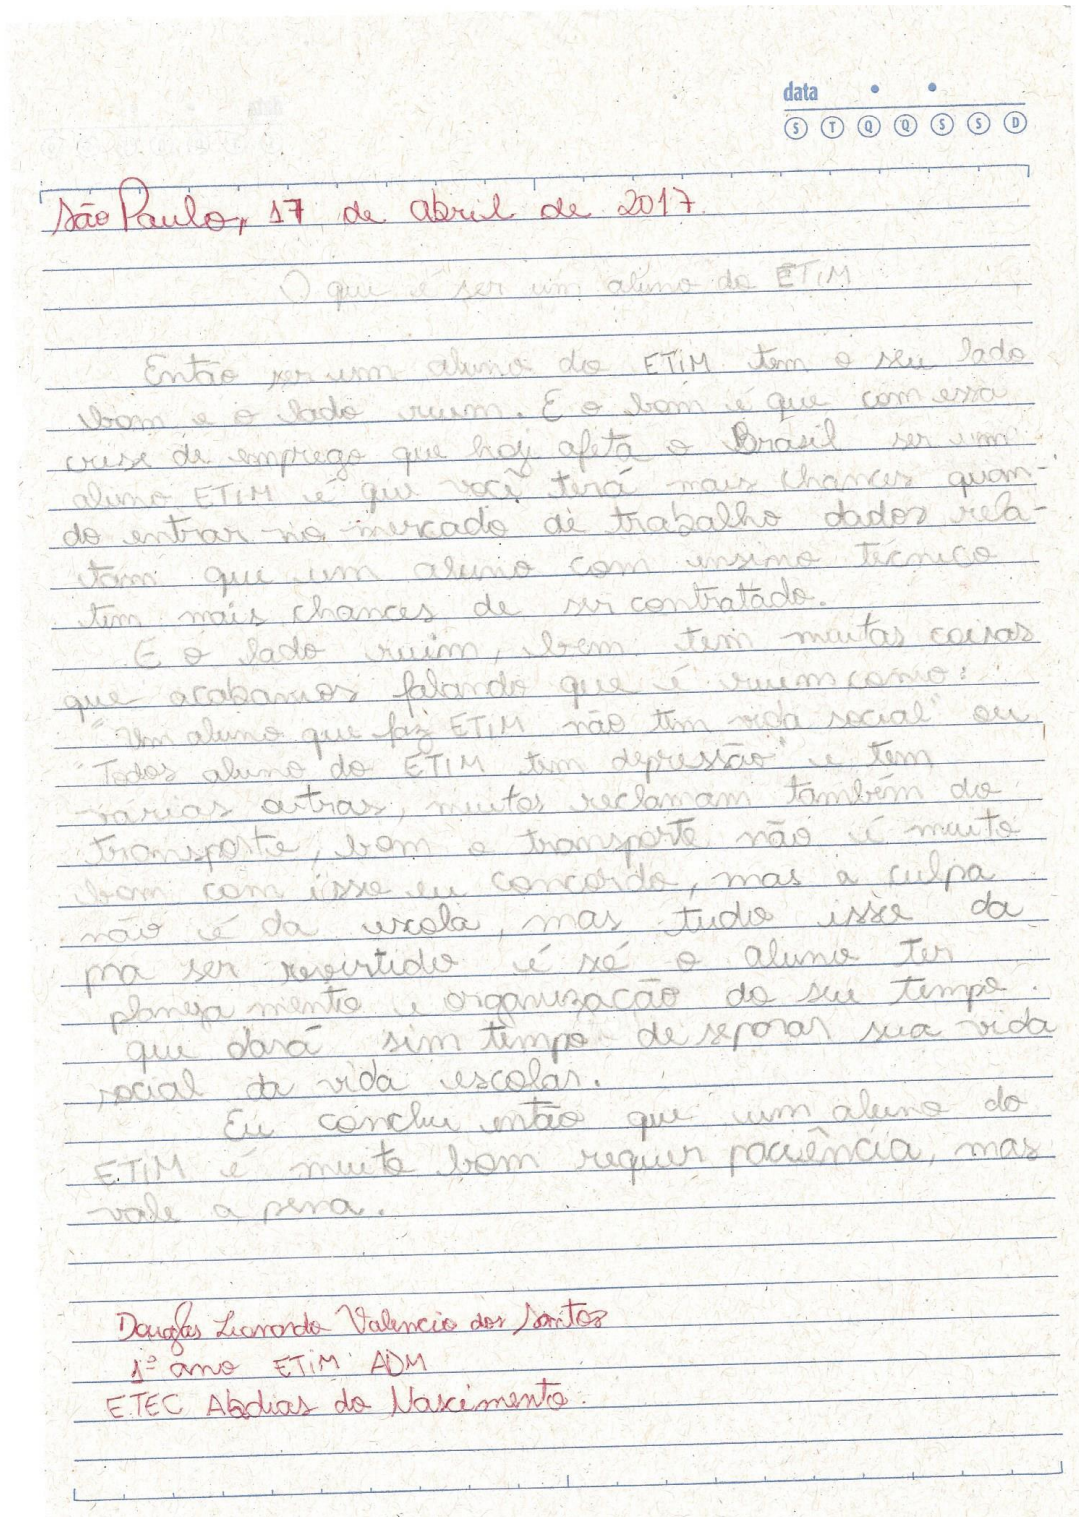 data
S T Q Q S S D
São Paulo, 17 de abril de 2017.
O que é ser um aluno do ETIM
Então ser um aluno do ETIM tem o seu lado
bom e o lado ruim. E o bom é que com essa
crise de emprego que hoje afeta o Brasil ser um
aluno ETIM é que você terá mais chances quan-
do entrar no mercado de trabalho dados rela-
tam que um aluno com ensino técnico
tem mais chances de ser contratado.
E o lado ruim, bem tem muitas coisas
que acabamos falando que é ruim como:
"Um aluno que faz ETIM não tem vida social" ou
"Todos aluno do ETIM tem depressão" e tem
várias outras, muitos reclamam também do
transporte, bom o transporte não é muito
bom com isso eu concordo, mas a culpa
não é da escola, mas tudo isso da
pra ser revertido é só o aluno ter
planejamento e organização do seu tempo.
que dará sim tempo de separar sua vida
social da vida escolar.
Eu conclui então que um aluno do
ETIM é muito bom requer paciência, mas
vale a pena.
Douglas Leonardo Valencio dos Santos
1º ano ETIM ADM
ETEC Abdias do Nascimento.